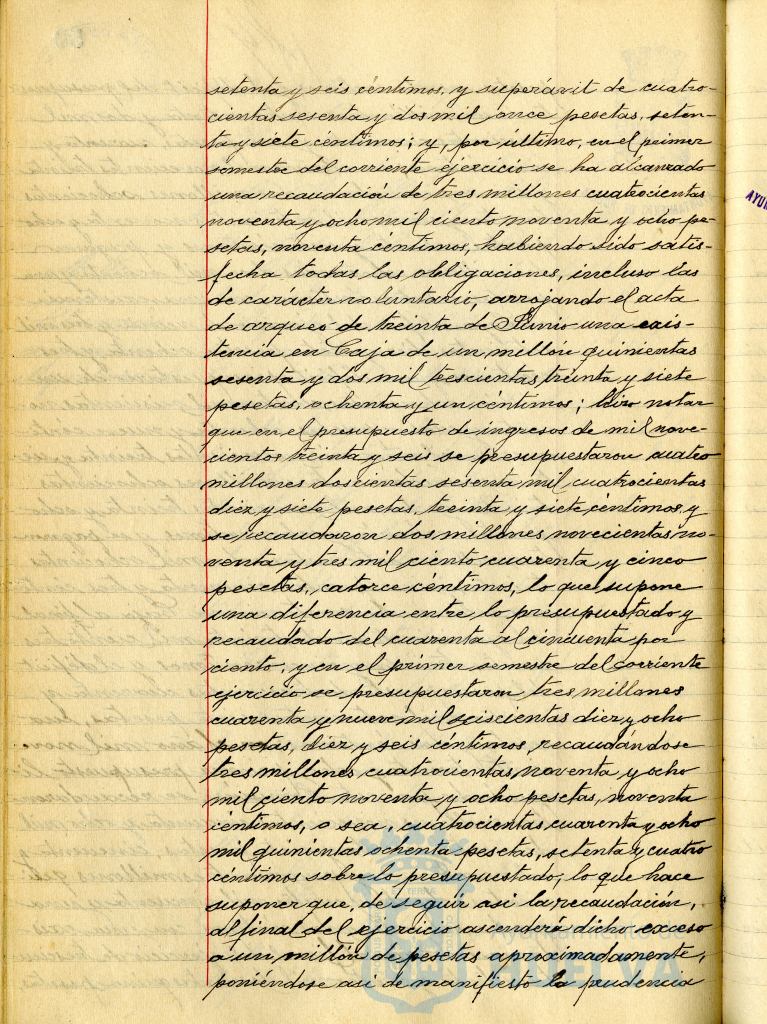 setenta y seis céntimos, y superávit de cuatro-
cientas sesenta y dos mil once pesetas, seten-
ta y siete céntimos; y, por último, en el primer
semestre del corriente ejercicio se ha alcanzado
una recaudación de tres millones cuatrocientas
noventa y ocho mil ciento noventa y ocho pe-
setas, noventa céntimos, habiendo sido satis-
fecha todas las obligaciones, incluso las
de carácter voluntario, arrojando el acta
de arqueo de treinta de Junio una exis-
tencia en Caja de un millón quinientas
sesenta y dos mil trescientas treinta y siete
pesetas, ochenta y un céntimos; hizo notar
que en el presupuesto de ingresos de mil nove-
cientos treinta y seis se presupuestaron cuatro
millones doscientas sesenta mil cuatrocientas
diez y siete pesetas, treinta y siete céntimos, y
se recaudaron dos millones novecientas no-
venta y tres mil ciento cuarenta y cinco
pesetas, catorce céntimos, lo que supone
una diferencia entre lo presupuestado y
recaudado del cuarenta al cincuenta por
ciento, y en el primer semestre del corriente
ejercicio se presupuestaron tres millones
cuarenta y nueve mil seiscientas diez y ocho
pesetas, diez y seis céntimos, recaudándose
tres millones cuatrocientas noventa y ocho
mil ciento noventa y ocho pesetas, noventa
céntimos, o sea, cuatrocientas cuarenta y ocho
mil quinientas ochenta pesetas, setenta y cuatro
céntimos sobre lo presupuestado, lo que hace
suponer que, de seguir asi la recaudación,
al final del ejercicio ascenderá dicho exceso
a un millón de pesetas aproximadamente,
poniéndose asi de manifiesto la prudencia